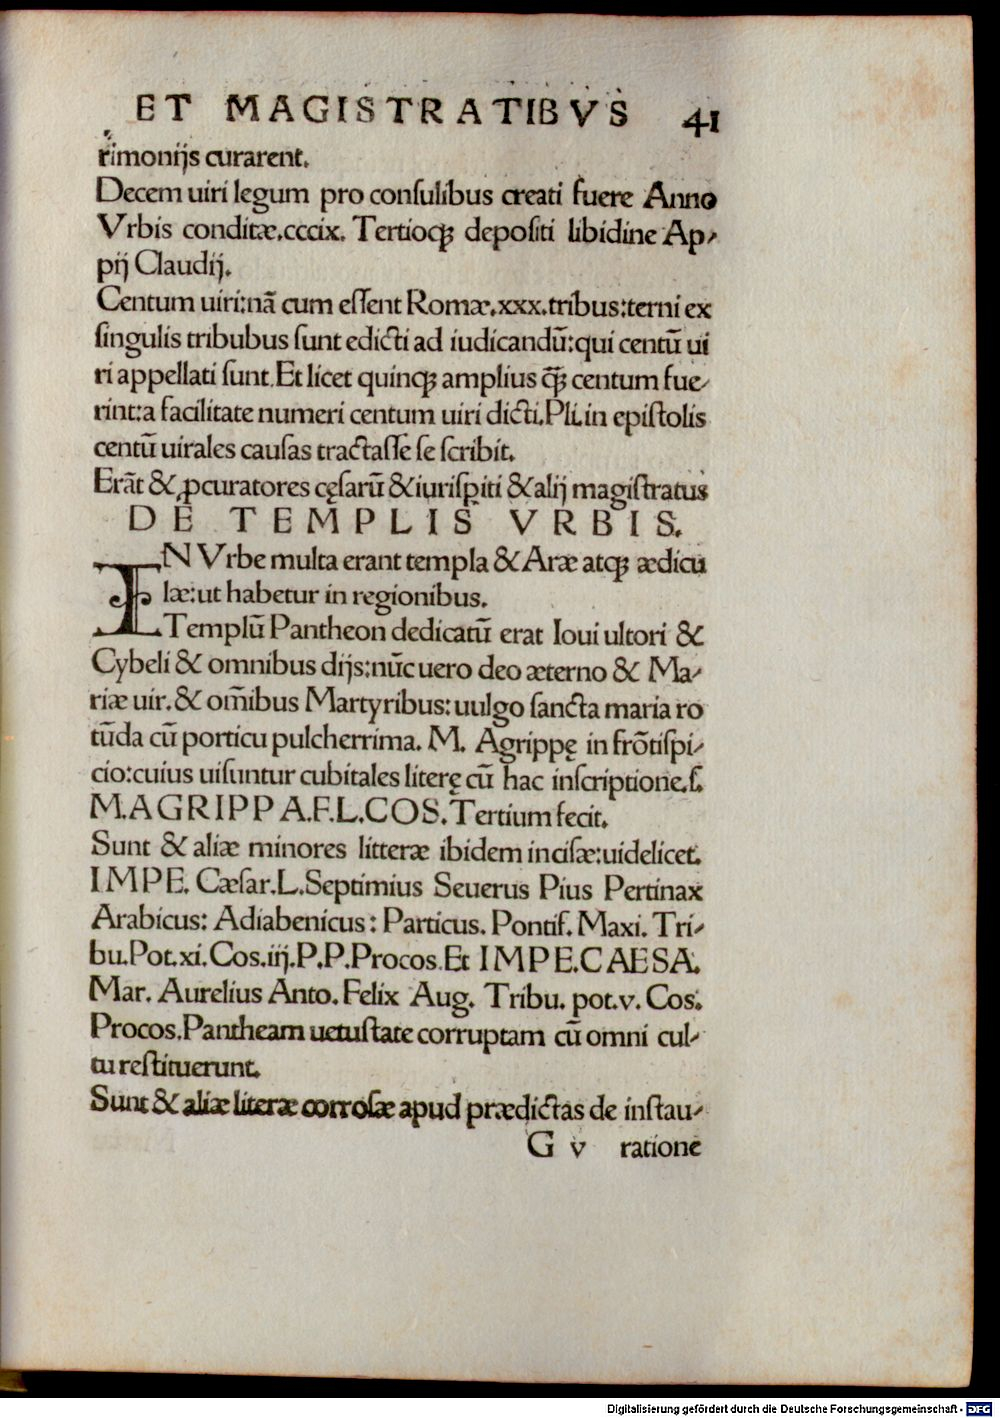 ET MAGISTRATIBVS 41
rimonijs curarent.
Decem uiri legum pro conſulibus creati fuere Anno
Vrbis conditæ.cccix. Tertioqꝫ depoſiti libidine Ap-
pij Claudij.
Centum uiri:nã cum eſſent Romæ.xxx.tribus:terni ex
ſingulis tribubus ſunt edicti ad iudicandũ:qui centũ ui
ri appellati ſunt.Et licet quinqꝫ amplius q̃ꝫ centum fue-
rint:a facilitate numeri centum uiri dicti.Pli.in epiſtolis
centũ uirales cauſas tractaſſe ſe ſcribit.
Erãt & ꝓcuratores cęſarũ & iuriſpiti & alij magiſtratus
DE TEMPLIS VRBIS.
IN Vrbe multa erant templa & Aræ atqꝫ ædicu
læ:ut habetur in regionibus.
Templũ Pantheon dedicatũ erat Ioui ultori &
Cybeli & omnibus dijs:nũc uero deo æterno & Ma-
riæ uir.& om̃ibus Martyribus:uulgo ſancta maria ro
tũda cũ porticu pulcherrima. M. Agrippę in frõtiſpi-
cio:cuius uiſuntur cubitales literę cũ hac inſcriptione.ſ.
M.AGRIPPA.F.L.COS.Tertium fecit.
Sunt & aliæ minores litteræ ibidem inciſæ:uidelicet.
IMPE. Cæſar.L.Septimius Seuerus Pius Pertinax
Arabicus: Adiabenicus: Particus. Pontif. Maxi. Tri-
bu.Pot.xi.Cos.iij.P.P.Procos.Et IMPE.CAESA.
Mar. Aurelius Anto. Felix Aug. Tribu. pot.v. Cos.
Procos.Pantheam uetuſtate corruptam cũ omni cul-
tu reſtituerunt.
Sunt & aliæ literæ corroſæ apud prædictas de inſtau-
G v ratione
Digitalisierung gefördert durch die Deutsche Forschungsgemeinschaft - DFG